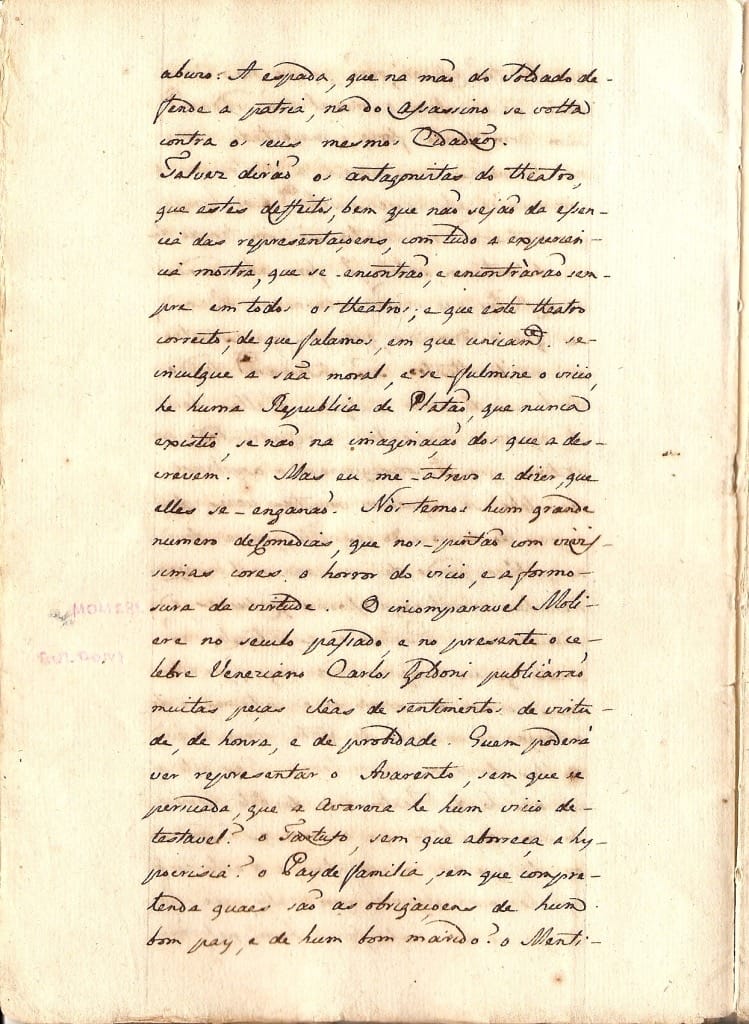 abuzo: A espada, que na mão do Soldado de-
fende a patria, na do Assassino se volta
contra os seus mesmos Cidadãos.
Talvez dirão os antagonistas do theatro,
que estes deffeitos, bem que não sejão da essen-
cia das representaçoens, com tudo a experien-
cia mostra, que se encontrão, e encontràrão sem-
pre em todos os theatros; e que este theatro
correcto, de que falamos, em que unicam.e se-
inculque a sãa moral, e se fulmine o vicio,
he huma Republica de Platão, que nunca
existio, se não na imaginação dos que a des-
crevem. Mas eu me-atrevo a dizer, que
elles se-enganão. Nòs temos hum grande
numero de Comedias, que nos-pintão com vivis-
simas cores o horror do vicio, e a formo-
sura da virtude. O incomparavel Moli-
ere no seculo passado, e no presente o ce-
lebre Veneziano Carlos Goldoni publicàrão
muitas peças chêas de sentimentos de virtu-
de, de honra, e de probidade. Quem poderá
ver representar o Avarento, sem que se
persuada, que a Avareza he hum vicio de-
testavel? o Tartufo, sem que aborreça a hy-
pocrisia? o Pay de familia, sem que compre-
henda quaes são as obrigaçoens de hum
bom pay, e de hum bom marido? o Menti-